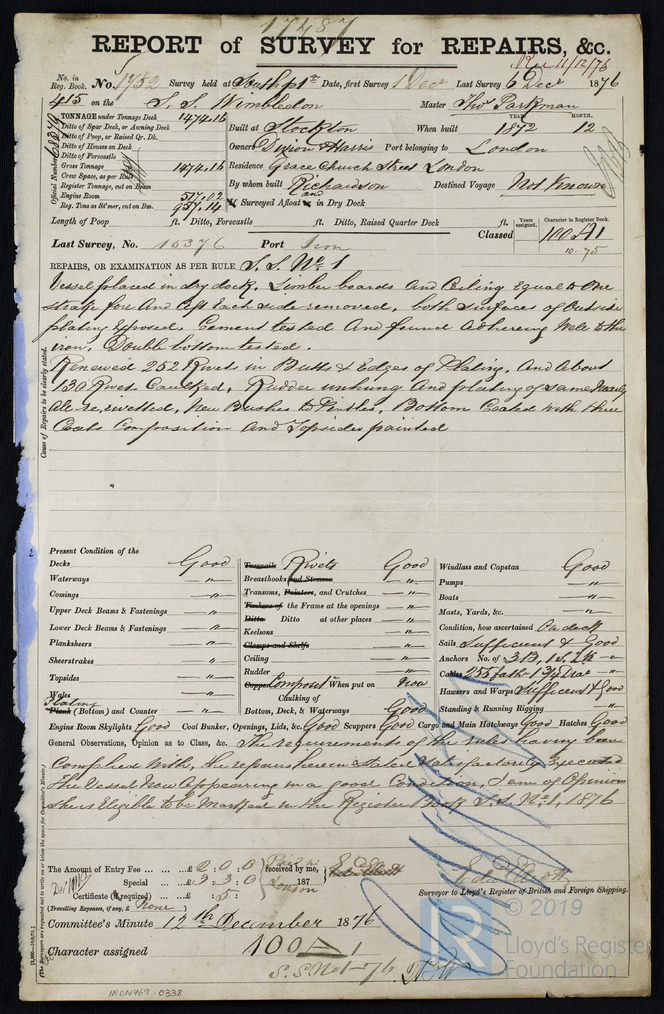 17487
REPORT of SURVEY for REPAIRS, &c.
Rec 11/12/76
No. in Reg. Book. No. 1752 Survey held at Southptn Date, first Survey 1 Decr Last Survey 6 Decr 1876
415 on the S. S. Wimbledon Master Thos Parkman
TONNAGE under Tonnage Deck 1474.16
Ditto of Spar Deck, or Awning Deck
Ditto of Poop, or Raised Qr. Dk.
Ditto of Houses on Deck
Ditto of Forecastle
Gross Tonnage 1474.16
Crew Space, as per Rule
Register Tonnage, cut on Beam
Engine Room 517.02
Reg. Tons as St'mer, cut on Bm. 957.14
Official Number
YEAR. MONTH.
Built at Stockton When built 1872 12
Owners Dixon & Harris Port belonging to London
Residence Grace Church Street London
By whom built Richardson Destined Voyage Not Known
If Surveyed Afloat or and in Dry Dock
Length of Poop ft. Ditto, Forecastle ft. Ditto, Raised Quarter Deck ft.
Years assigned. Character in Register Book.
Classed 100 A1
10-75
Last Survey, No. 15376 Port Iron
REPAIRS, OR EXAMINATION AS PER RULE S. S. No 1
Cause of Repairs to be clearly stated.
Vessel placed in dry dock. Limber boards and Ceiling Equal to One
strake fore And Aft Each side removed, both surfaces of Outside
plating Exposed. Cement tested And found Adhering Well to the
iron, Double bottom tested.
Renewed 252 Rivets in Butts & Edges of Plating, And About
130 Rivets Caulked, Rudder unhung And plating of same nearly
All re,rivetted, New Bushes to Pintles, Bottom Coated with three
Coats Composition And Topsides painted
Present Condition of the
Decks Good
Waterways "
Comings "
Upper Deck Beams & Fastenings "
Lower Deck Beams & Fastenings "
Planksheers "
Sheerstrakes "
Topsides "
Wales "
Plating
Plank (Bottom) and Counter "
Treenails Rivets Good
Breasthooks and Stemson "
Transoms, Pointers, and Crutches "
Timbers of the Frame at the openings "
Ditto Ditto at other places "
Keelsons "
Clamps and Shelfs
Ceiling "
Rudder "
Copper Composit When put on Now
Caulking of
Bottom, Deck, & Waterways Good
Windlass and Capstan Good
Pumps "
Boats "
Masts, Yards, &c. "
Condition, how ascertained On deck
Sails Sufficient & Good
Anchors No. of 3B, 1S, 2K "
Cables 255 fath "
Hawsers and Warps Sufficient & Good
Standing & Running Rigging "
Engine Room Skylights Good Coal Bunker, Openings, Lids, &c. Good Scuppers Good Cargo and Main Hatchways Good Hatches Good
General Observations, Opinion as to Class, &c. The requirements of the rules having been
Complied with, the repairs herein stated satisfactorily Executed
The Vessel Now Appearing in a good Condition, I am of Opinion
she is Eligible to be Marked in the Register Book S.S. No 1, 1876
(The Surveyors are requested not to write on or below the space for Committee's Minute.)
The Amount of Entry Fee £ 2 : 0 : 0 received by me,
Special £ 3 : 3 : 0 187
London
Certificate (if required) £ : 5 :
(Travelling Expenses, if any, £ None )
Surveyor to Lloyd's Register of British and Foreign Shipping.
Committee's Minute 12th December 1876
Character assigned 100 A 1
S.S. No 1-76
IRON469-0338
© 2019
Lloyd's Register
Foundation